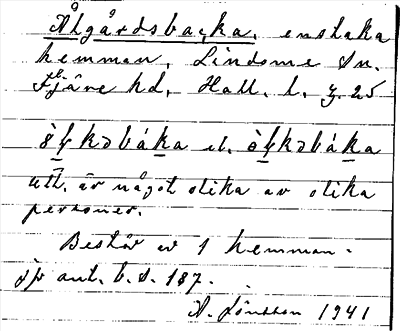 Ålgårdsbacka, enstaka
hemman, Lindome sn.
Fjäre hd, Hall. l. 25
el.
utt. är något olika av olika
personer.
Består av 1 hemman.
jfr ant. b. s. 187.
A. Jönsson 1941